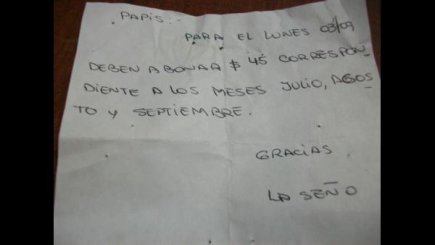 PAPIS:
PARA EL LUNES 03/09
DEBEN ABONAR $ 45 CORRESPON
DIENTE A LOS MESES JULIO, AGOS
TO Y SEPTIEMBRE.
GRACIAS
LA SEÑO